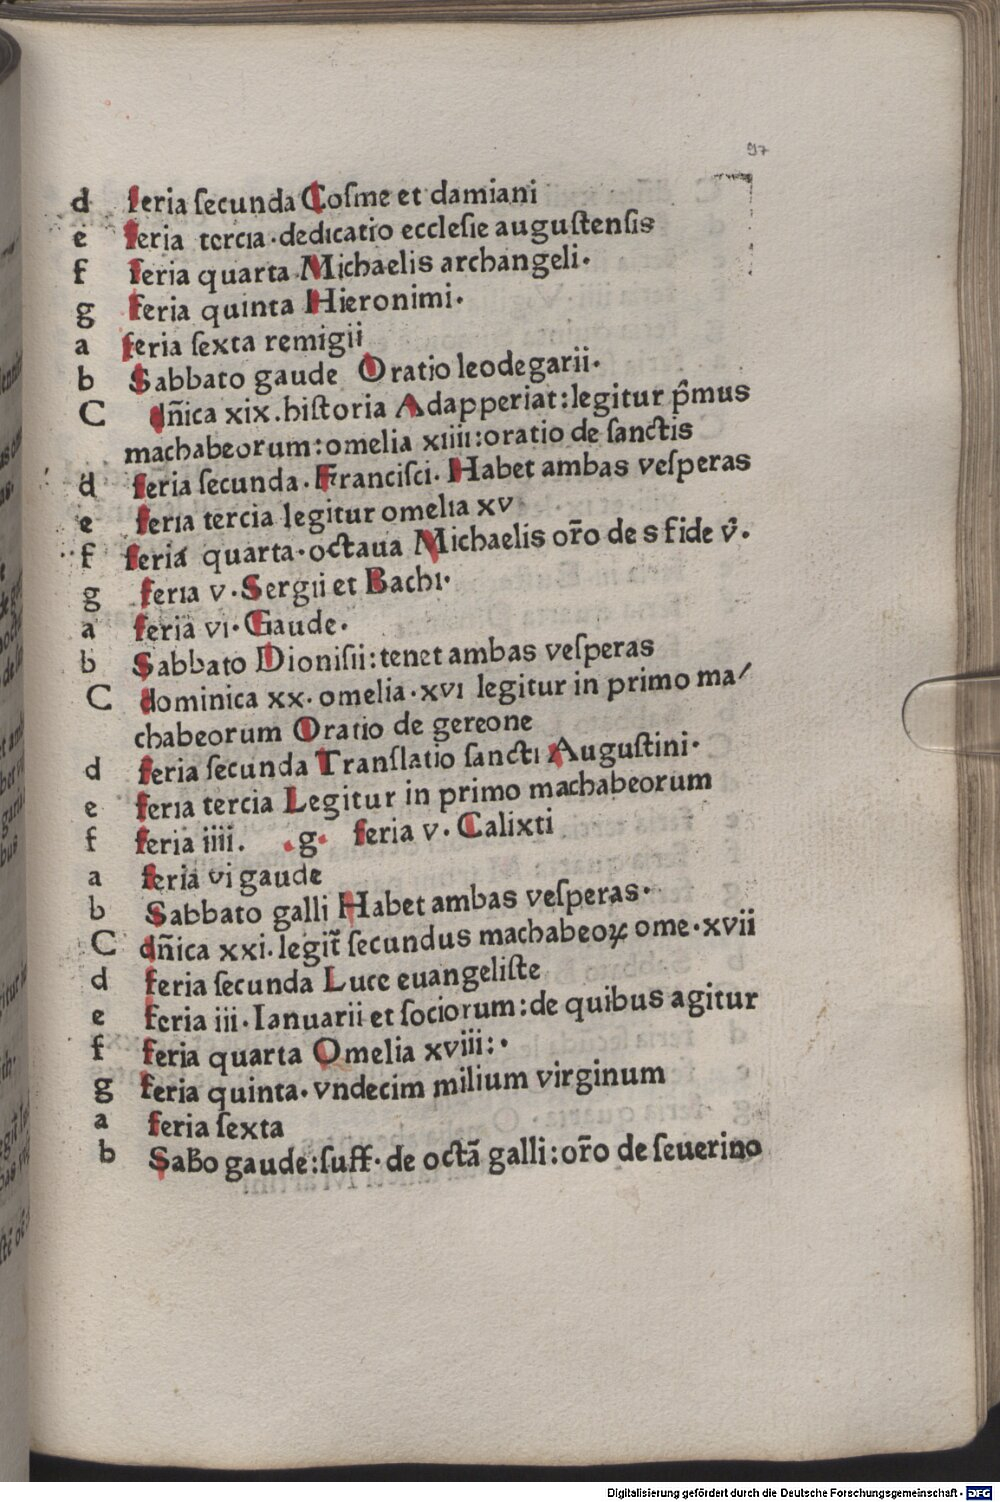 97
d feria ſecunda Coſme et damiani
e feria tercia·dedicatio eccleſie auguſtenſis
f feria quarta Michaelis archangeli·
g feria quinta Hieronimi·
a feria ſexta remigii
b Sabbato gaude Oratio leodegarii·
C dn̄ica xix.hiſtoria Adapperiat:legitur p̄mus
machabeorum:omelia xiiii:oratio de ſanctis
d feria ſecunda·Franciſci·Habet ambas veſperas
e feria tercia legitur omelia xv
f feria quarta·octaua Michaelis or̄o de s fide v̄·
g feria v·Sergii et Bachi·
a feria vi·Gaude·
b Sabbato Dioniſii:tenet ambas veſperas
C dominica xx·omelia·xvi legitur in primo ma/
chabeorum Oratio de gereone
d feria ſecunda Tranſlatio ſancti Auguſtini·
e feria tercia Legitur in primo machabeorum
f feria iiii. ·g· feria v·Calixti
a feria vi gaude
b Sabbato galli Habet ambas veſperas·
C dn̄ica xxi·legit̄ ſecundus machabeoꝝ ome·xvii
d feria ſecunda Luce euangeliſte
e feria iii·Ianuarii et ſociorum:de quibus agitur
f feria quarta Omelia xviii:·
g feria quinta·vndecim milium virginum
a feria ſexta
b Sabbo gaude:ſuff·de octā galli:or̄o de ſeuerino
Digitalisierung gefördert durch die Deutsche Forschungsgemeinschaft - DFG